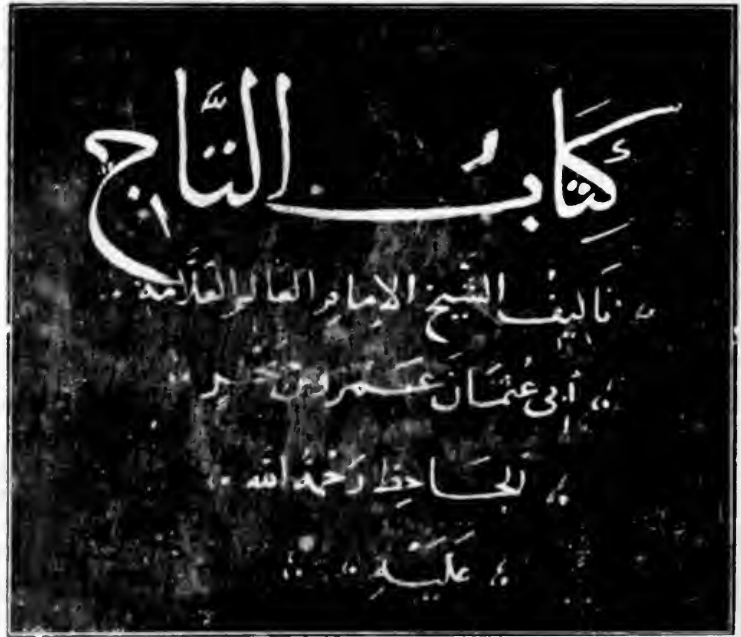 كِتَابُ التَّاج
تَأليفُ الشَّيخ الإمام العالم العلّامة
أبي عُثمَانَ عَمرو بن بَحرٍ
الجَاحِظ رَحْمَةُ الله
عَلَيْهِ